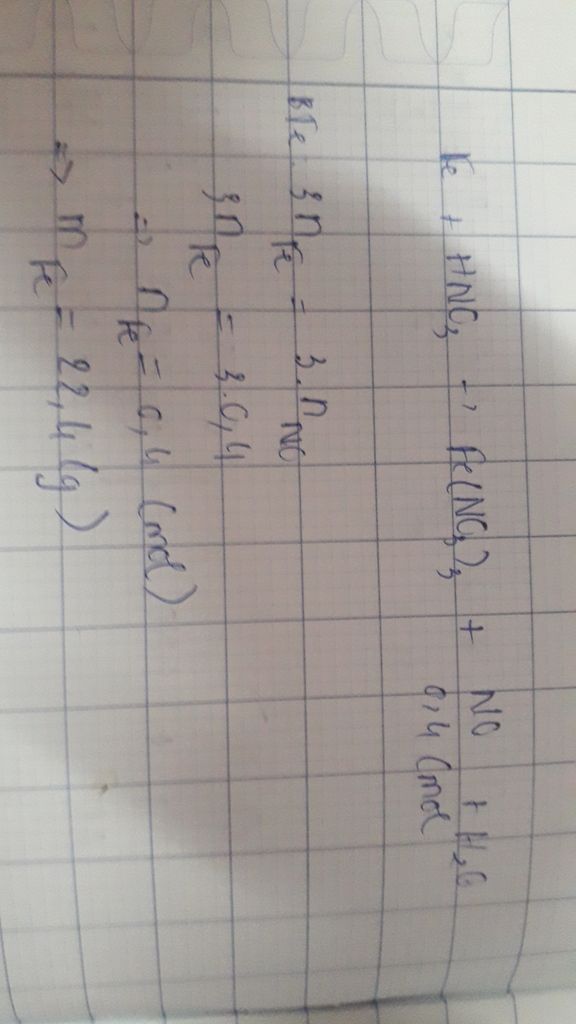 Fe + HNO₃ → Fe(NO₃)₃ + NO + H₂O
0,4 (mol
BTe: 3n_Fe = 3.n_NO
3n_Fe = 3.0,4
=> n_Fe = 0,4 (mol)
=> m_Fe = 22,4 (g)